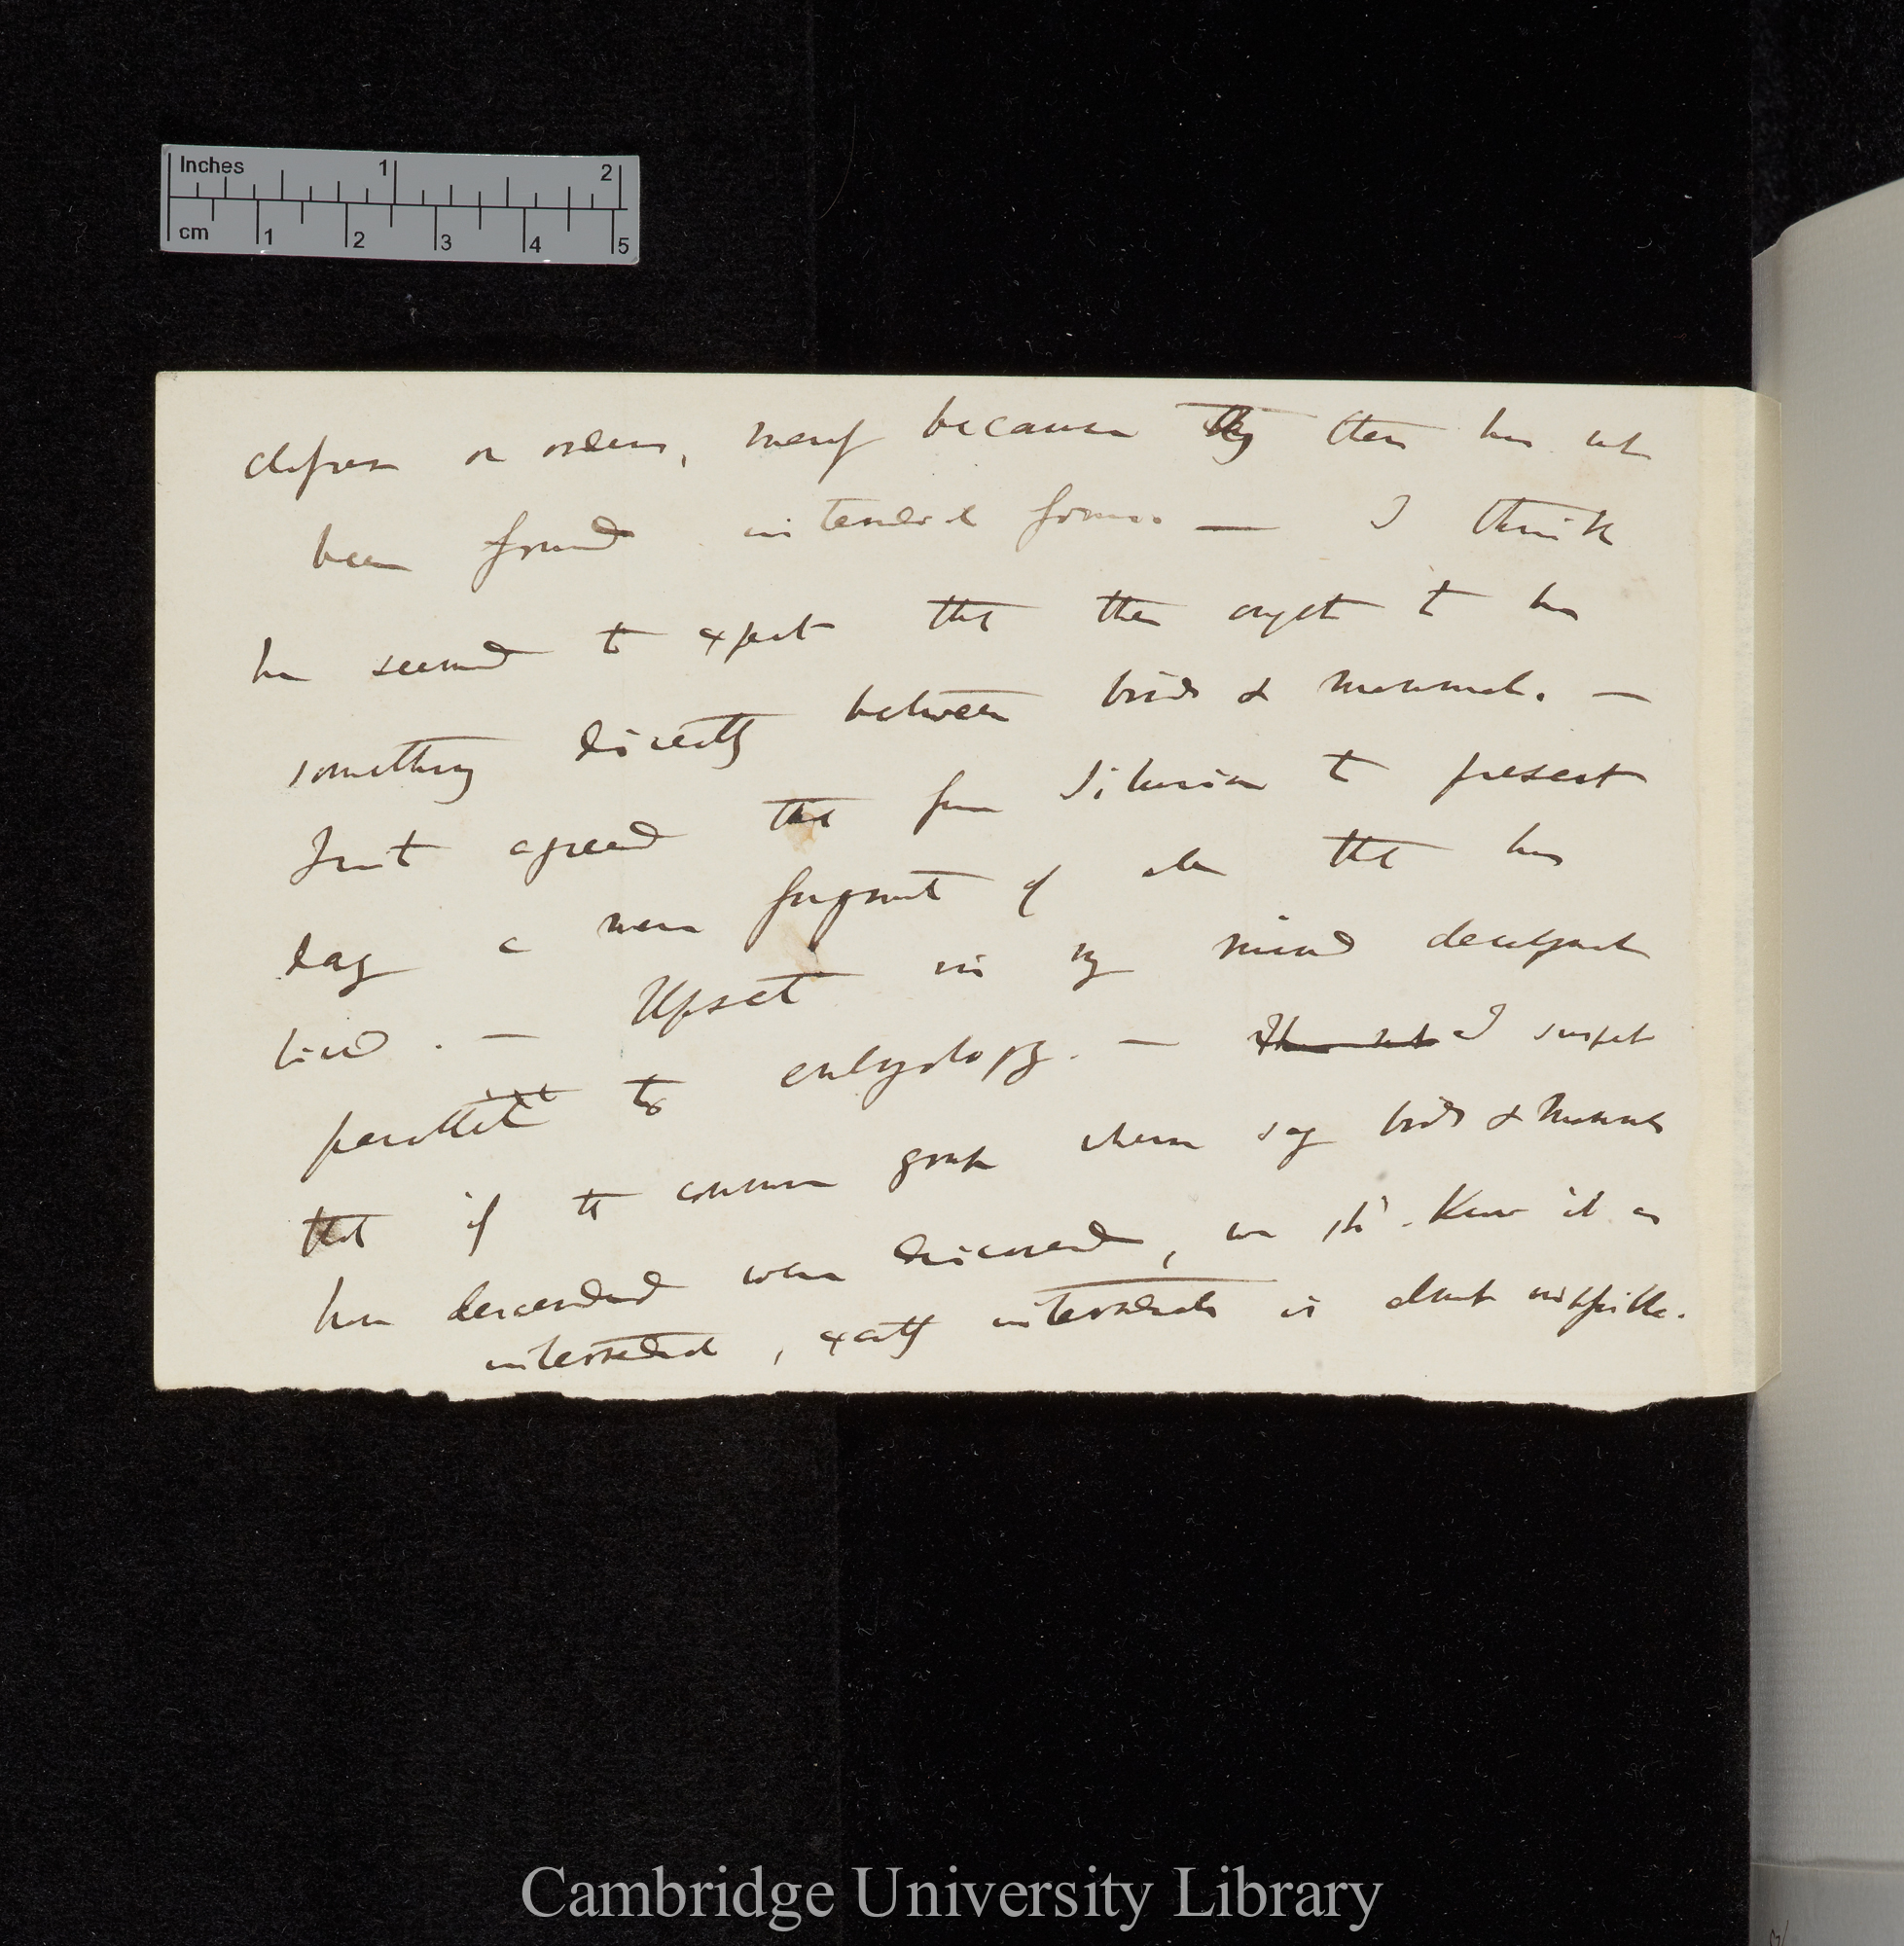 Inches 1 2
cm 1 2 3 4 5
classes or orders, merely because there has not
been found intermediate forms. — I think
he seemed to expect that there ought to be
something directly between birds & mammals. —
Forbes agreed that from Silurian to present
day a mere fragment of what has
lived. — Upset in my mind development
parallel to embryology. — I suspect
that if the common group whence say birds & mammals
have descended were discovered, we shd. know it as
intermediate, exactly intermediate is almost impossible.
Cambridge University Library